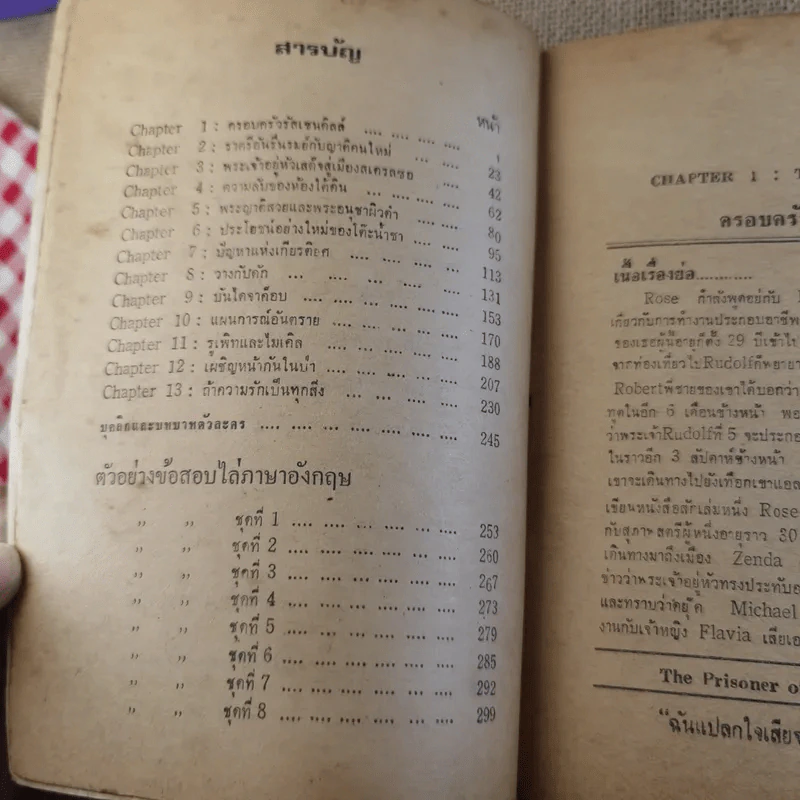 สารบัญ
หน้า
Chapter 1 : ครอบครัวรัสเซนดิลล์ .... .... .... .... 1
Chapter 2 : ราตรีอันรื่นรมย์กับญาติคนใหม่ .... .... 23
Chapter 3 : พระเจ้าอยู่หัวเสด็จสู่เมืองสเตรลซอ .... 42
Chapter 4 : ความลับของห้องใต้ดิน ... .... .... .... 62
Chapter 5 : พระญาติสวยและพระอนุชาผิวดำ .... .... 80
Chapter 6 : ประโยชน์อย่างใหม่ของโต๊ะน้ำชา .... .... 95
Chapter 7 : ปัญหาแห่งเกียรติยศ .... .... .... .... 113
Chapter 8 : วางกับดัก ... ... .... .... .... 131
Chapter 9 : บันไดจาค็อบ .... .... .... .... .... 153
Chapter 10 : แผนการณ์อันตราย .... .... .... .... 170
Chapter 11 : รูเพิทและไมเคิล .... .... .... .... 188
Chapter 12 : เผชิญหน้ากันในป่า .... .... .... .... 207
Chapter 13 : ถ้าความรักเป็นทุกสิ่ง ... .... .... .... 230
บุคลิกและบทบาทตัวละคร .... .... .... .... .... .... 245
ตัวอย่างข้อสอบไล่ภาษาอังกฤษ
” ” ชุดที่ 1 .... .... .... .... ... .... 253
” ” ชุดที่ 2 .... .... .... .... .... .... 260
” ” ชุดที่ 3 .... .... .... .... .... .... 267
” ” ชุดที่ 4 .... .... .... .... .... .... 273
” ” ชุดที่ 5 .... .... .... .... .... .... 279
” ” ชุดที่ 6 .... .... .... .... .... .... 285
” ” ชุดที่ 7 .... .... .... .... .... .... 292
” ” ชุดที่ 8 .... .... .... .... .... .... 299
CHAPTER 1 :
ครอบครัว
เนื้อเรื่องย่อ............
Rose กำลังพูดอยู่กับ
เกี่ยวกับการทำงานประกอบอาชีพ
ของเธอผู้มีอายุตั้ง 29 ปีเข้าไป
จากท่องเที่ยวไปRudolfก็พยายา
Robertพี่ชายของเขาได้บอกว่า
ทูตในอีก 6 เดือนข้างหน้า
ว่าพระเจ้าRudolfที่ 5 จะประกอ
ในราวอีก 3 สัปดาห์ข้างหน้า
เขาจะเดินทางไปยังเทือกเขาแอล
เขียนหนังสือสักเล่มหนึ่ง Rose
กับสุภาพสตรีผู้หนึ่งอายุราว 30
เดินทางมาถึงเมือง Zenda
ข่าวว่าพระเจ้าอยู่หัวทรงประทับอ
และทราบว่าดยุ๊ค Michael
งานกับเจ้าหญิง Flavia เสียเอ
The Prisoner o
“ฉันแปลกใจเสียจ